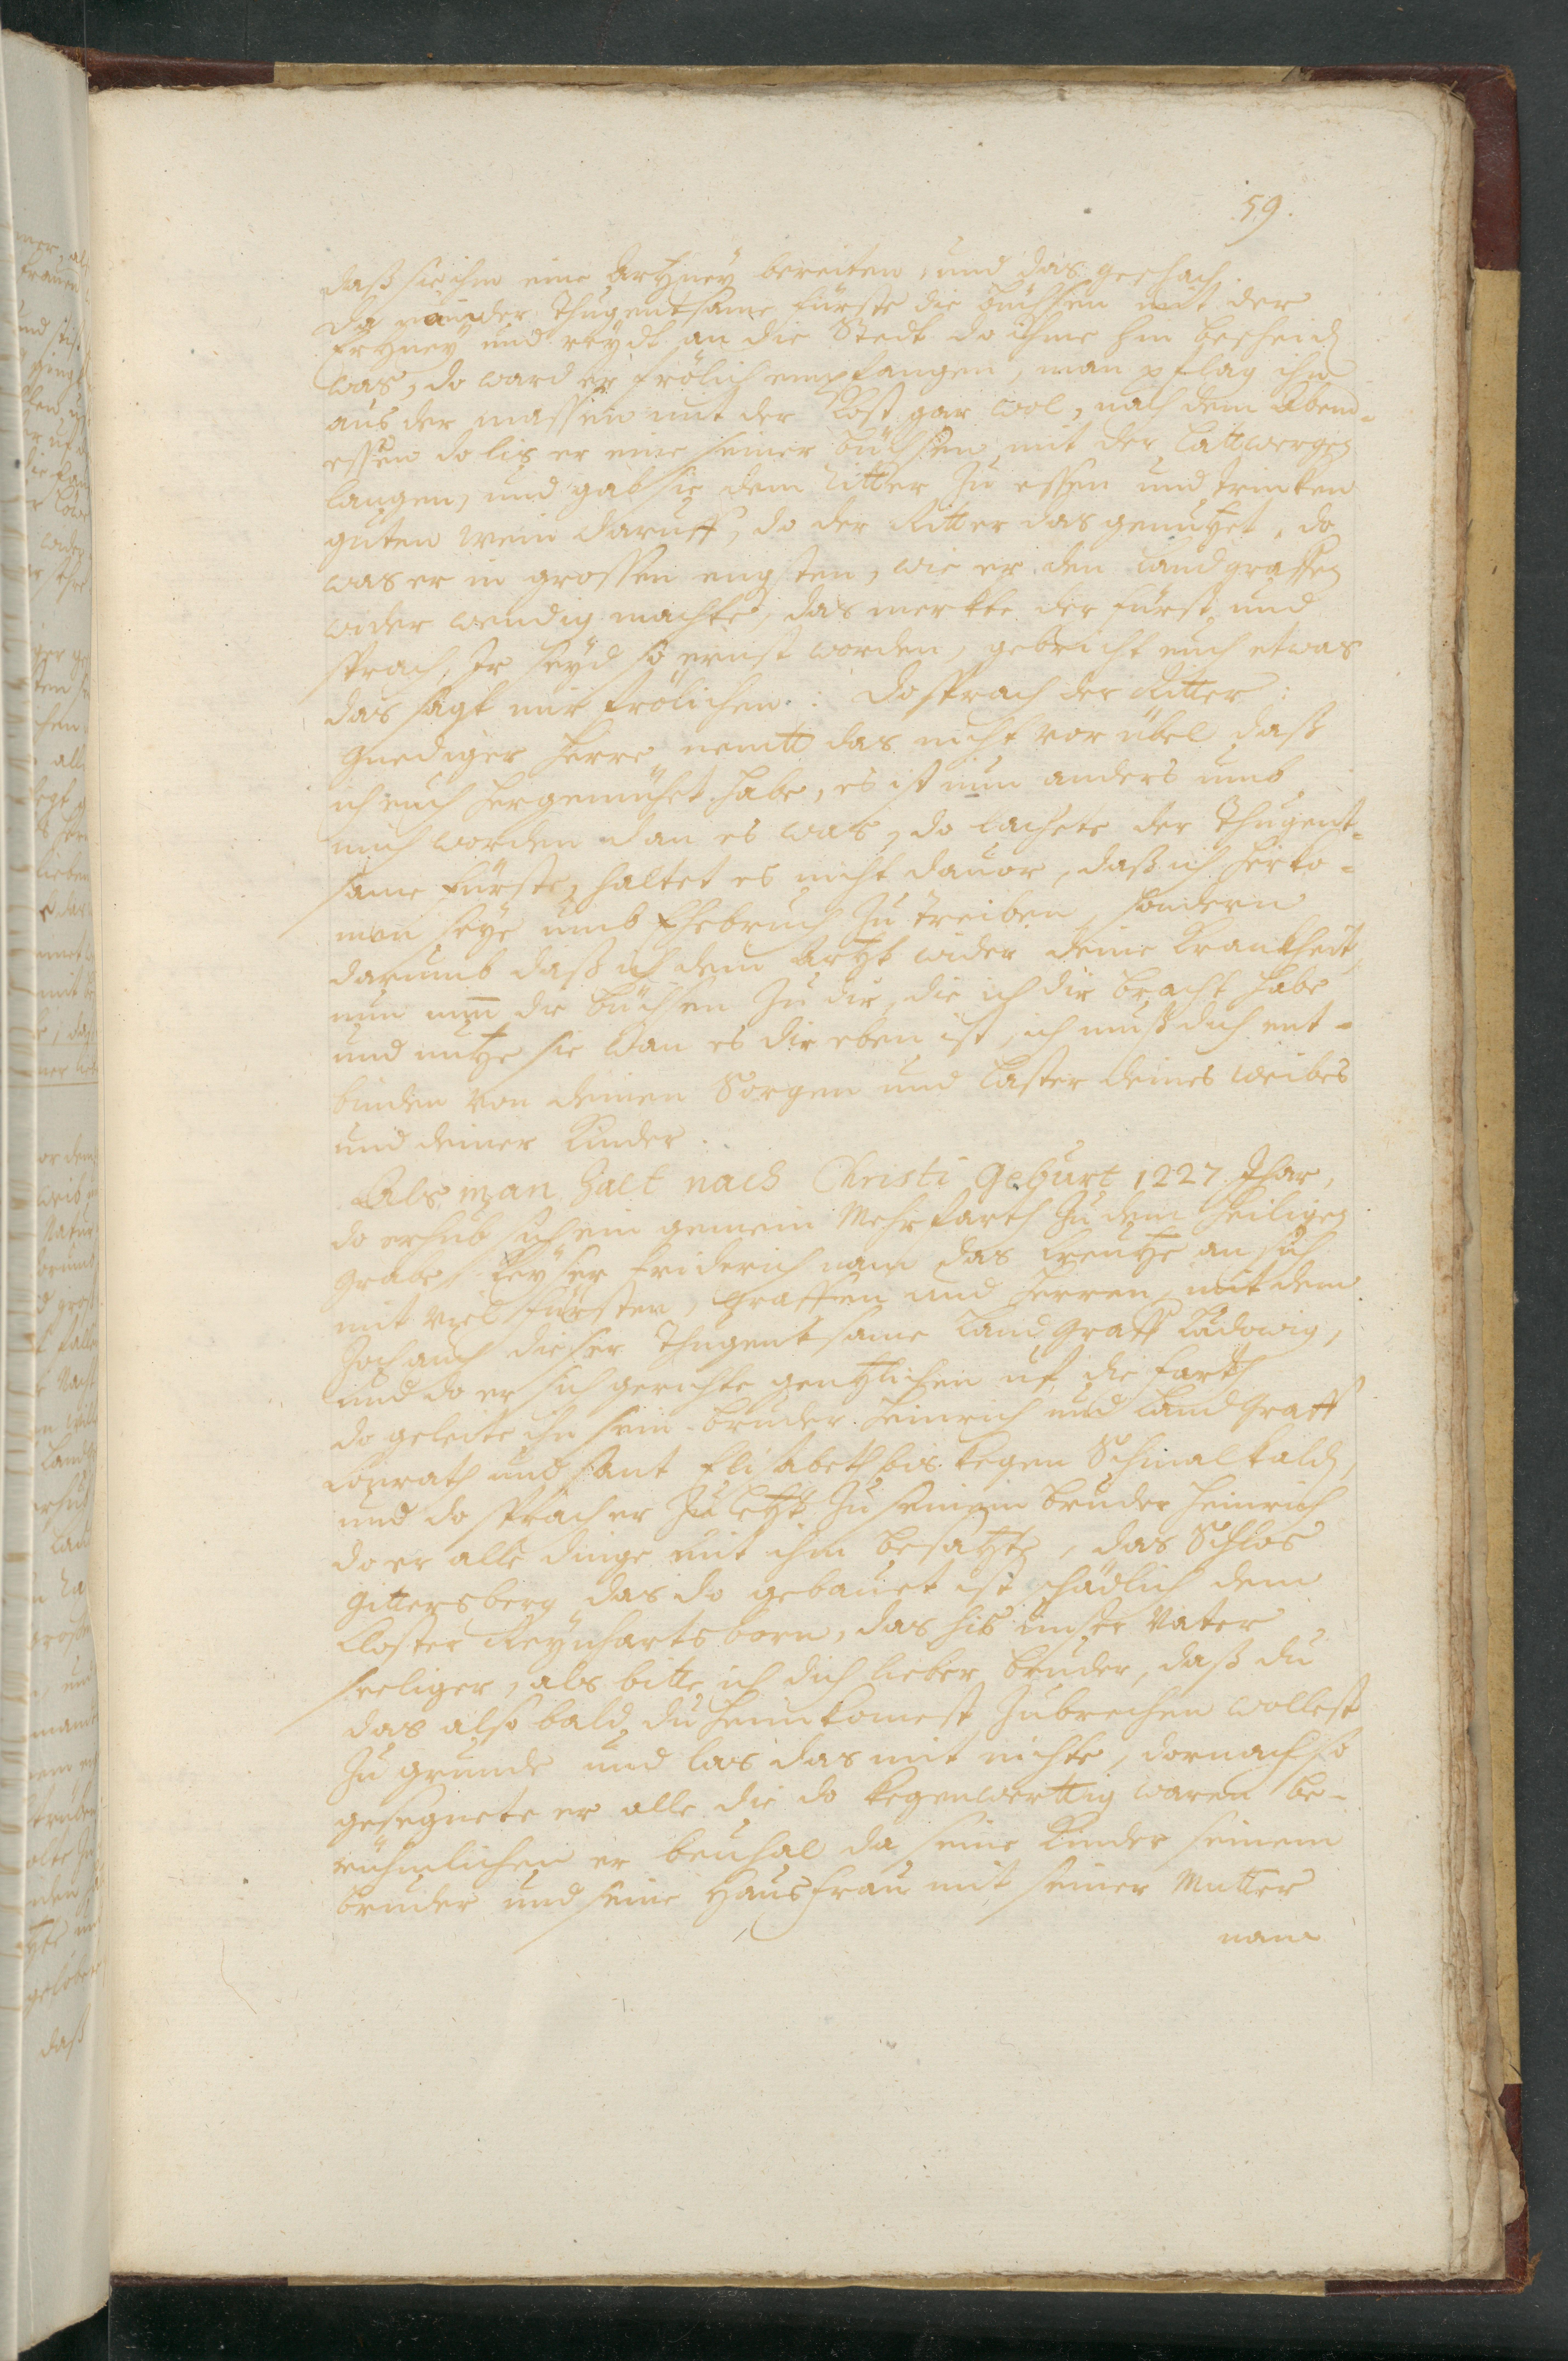 59.
daß sie ihm eine Artzney bereiten, und das geschach.
Da nam der Thugentsame Fürste die Büchsen mit der
Ertzney und reydt an die Stedt do ihme hin bescheid
was, do ward er frölich empfangen, man pflag ihn
aus der massen mit der Kost gar wol, nach dem Abend-
essen do lis er eine seiner Büchsen mit der Lattwergen
langen, und gab sie dem Ritter zu essen und trinken
guten Wein daruff, do der Ritter das genutzet, do
was er in grossen engsten, wie er den Landgraffen
wider wendig machte, das merkte der Fürst und
sprach, Ir seyd so ernst worden, gebricht euch etwas
das sagt mir frölichen: Do sprach der Ritter:
Gnediger Herre, nemtt das nicht vor übel daß
ich euch hergemühet habe, es ist nun anders umb
mich worden dan es was, do lachete der Thugent-
same Fürste, haltet es nicht davor, daß ich herko-
men seye umb Ehebruch zu treiben, sondern
darumb daß ich dein Artzt wider deine Krankheit,
nun nim die Büchsen zu dir, die ich dir bracht habe
und nutze sie wan es dir eben ist, ich muß dich ent-
binden von deinen Sorgen und Laster deines Weibes
und deiner Kinder.
Als man zalt nach Christi Geburt 1227 Jhar,
do erhub sich ein gemein Mehrfarth zu dem Heiligen
Grabe, Keyser Friderich nam das Creutze an sich
mit viel Fürsten, Graffen und Herren, mit dem
zoch auch dieser Thugentsame Landgraff Ludowig,
und do er sich gerichte gentzlichen uf die Farth
do geleite ihn sein Bruder Heinrich und Landgraff
Conrath und Sant Elisabeth bis kegen Schmalkald,
und do sprach er zu letzt zu seinem Bruder Heinrich
do er alle Dinge mit ihm besatzte, das Schlos
Gittersberg das do gebauet ist schädlich dem
Closter Reynhartsborn, das his unser Vater
seeliger, als bitte ich dich lieber Bruder, daß du
das also bald du heimkomest zubrechen wollest
zu grunde und las das mit nichte, dornach so
gesegnete er alle die do kegenwerttig waren be-
rühmlichen er bevhal da seine Kinder seinem
Bruder und seine Hausfrau mit seiner Mutter
nam